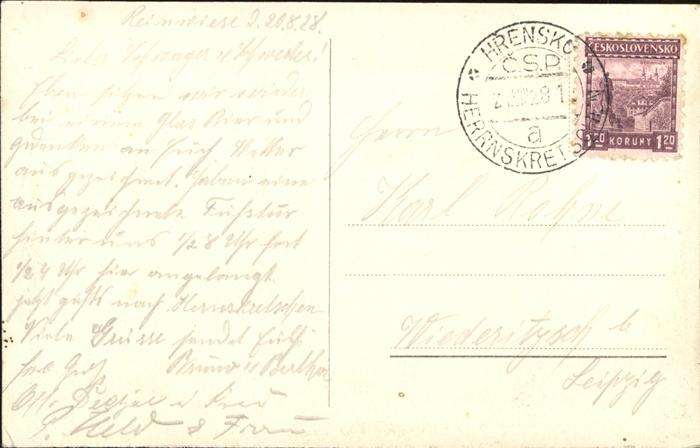 Reinwiese d. 20.8.28.
Lieber Schwager u Schwester!
Eben sitzen wir wieder
bei einem Glas Bier und
gedenken an Euch Wetter
ausgezeichnet. Haben eine
ausgezeichnete Fußtur
hinter uns 1/2 8 Uhr fort
1/2 4 Uhr hier angelangt
jetzt gehts nach Herrnskretschen
Viele Grüsse sendet Euch
Bruno u Bertha
Held & Frau
HŘENSKO
Č.S.P.
a
HERRNSKRETSCHEN
ČESKOSLOVENSKO
1.20 KORUNY 1.20
Herrn
Karl
Wiederitzsch b
Leipzig